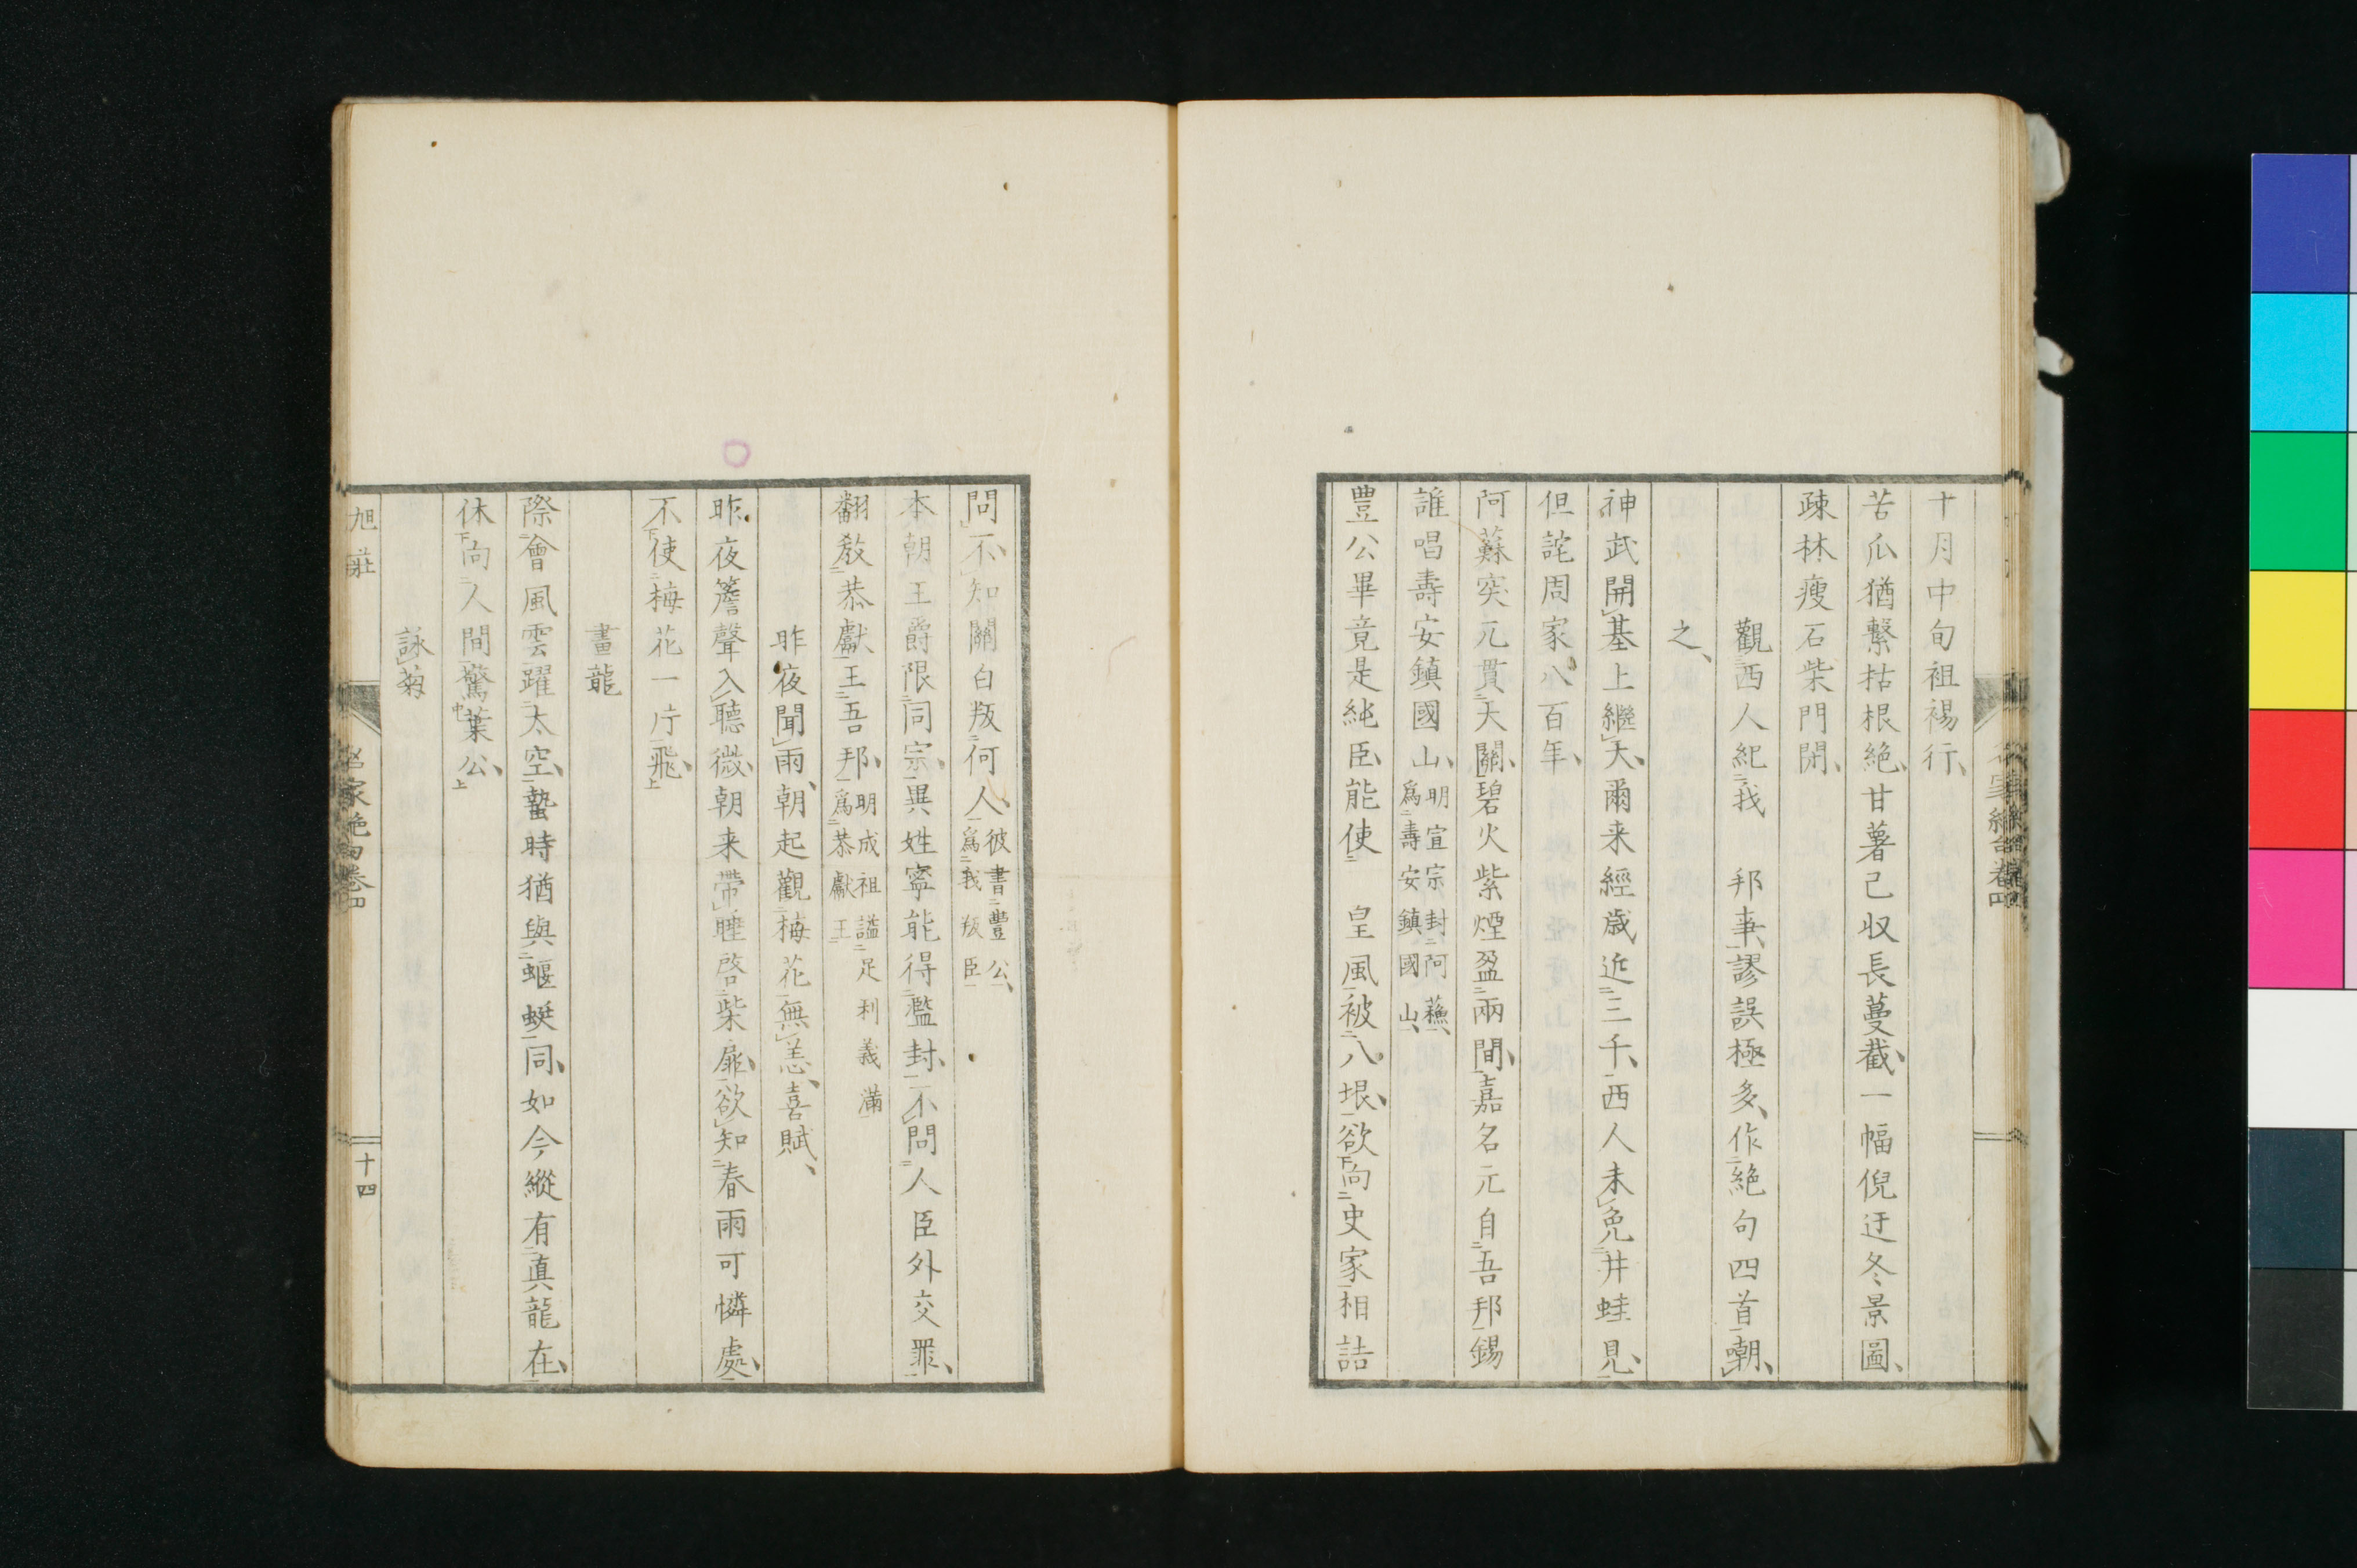 十月中旬袒裼行、
苦瓜猶繫枯根絶、甘薯己収長蔓截、一幅倪迂冬景圖、
疎林瘦石柴門開、
觀西人紀我 邦事、謬誤極多、作絶句四首嘲、
之、
神武開基上繼天、爾来經歳近三千、西人未免井蛙見、
但詫周家八百年、
阿蘇突兀貫天關、碧火紫煙盈兩間、嘉名元自吾邦錫
誰唱壽安鎮國山、明宣宗封阿蘓、爲壽安鎮國山、
豊公畢竟是純臣、能使 皇風被八垠、欲向史家相詰
問、不知關白叛何人、彼書豊公、爲我叛臣
本朝王爵限同宗、異姓寧能得濫封、不問人臣外交罪、
翻教恭獻王吾邦、明成祖謚足利義滿爲恭獻王
昨夜聞雨、朝起觀梅花無恙、喜賦、
昨夜簷聲入聽微、朝来帶睡啓柴扉、欲知春雨可憐處、
不使梅花一片飛、
畫龍
際會風雲躍太空、蟄時猶與蝘蜓同、如今縱有真龍在、
休向人間驚葉公、
詠菊
旭莊
家絶句卷四
十四